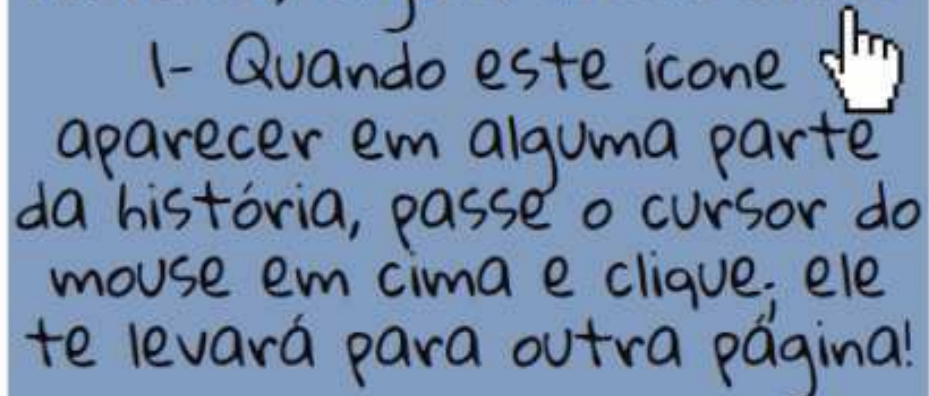 1- Quando este ícone
aparecer em alguma parte
da história, passe o cursor do
mouse em cima e clique; ele
te levará para outra página!